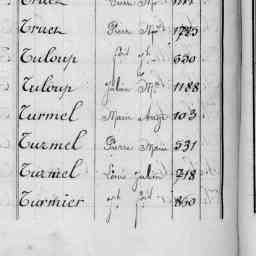 Truet Pierre Mie
Truet Pierre Marie 1785
Tuloup fois Jh 630
Tuloup Julien Mie 1188
Turmel Marie Ange 103
Turmel Pierre Marie 531
Turmel Louis Julien 718
Turmier Jh fois 860